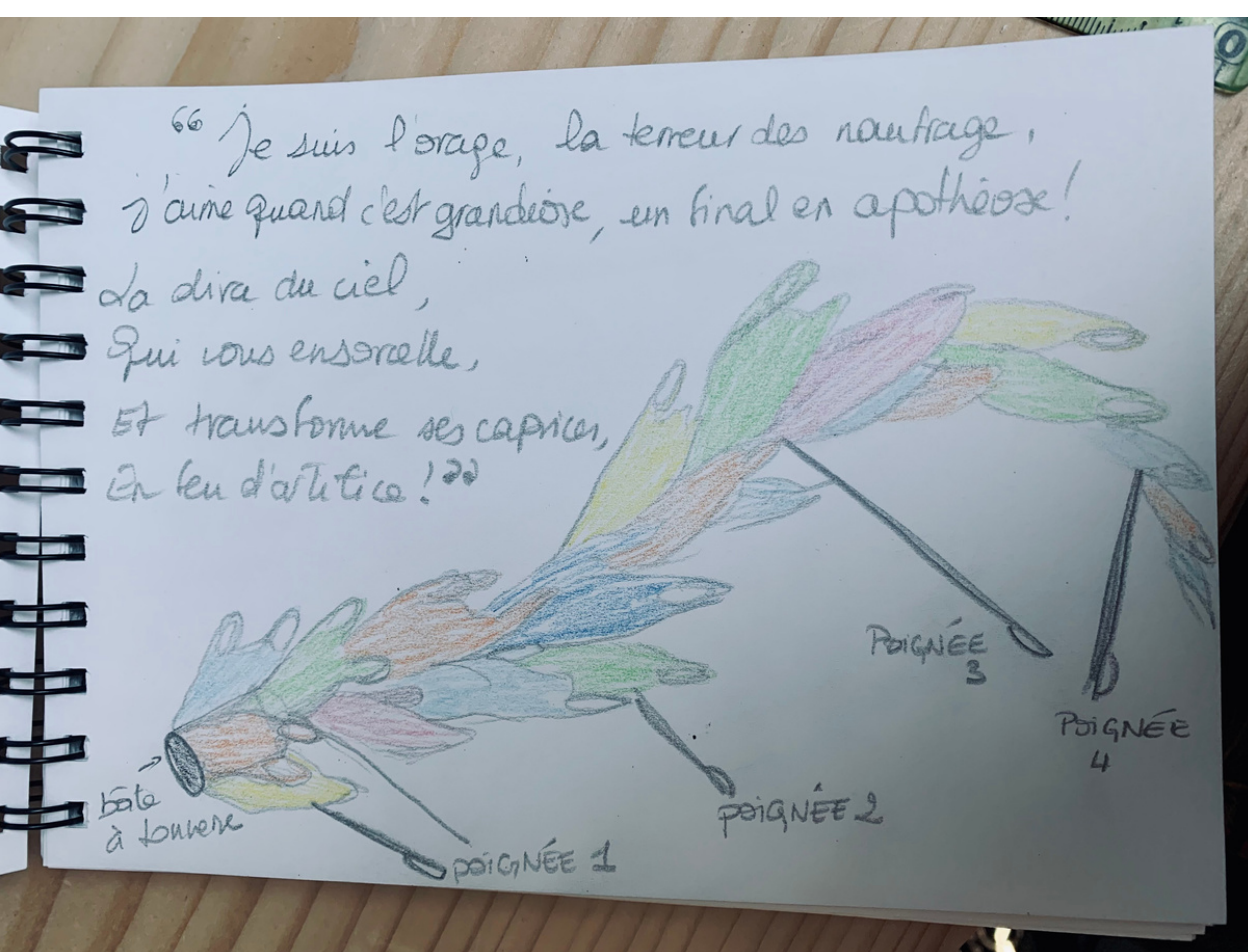 “Je suis l'orage, la terreur des naufrage,
j'aime quand c'est grandiose, un final en apothéose!
La diva du ciel,
Qui vous ensorcelle,
Et transforme ses caprices,
En feu d'artifice!”
POIGNÉE
3
POIGNÉE
4
boîte
à tonnerre
POIGNÉE 2
POIGNÉE 1